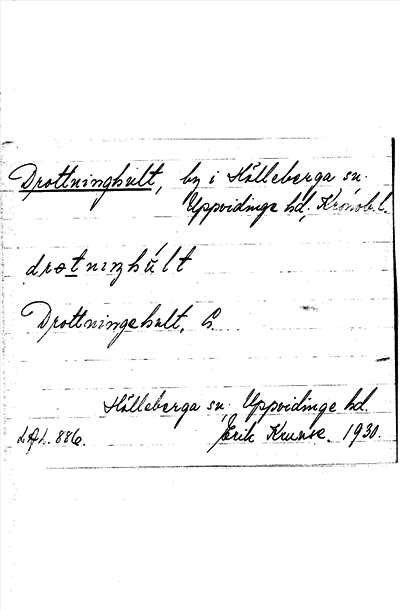 Drottninghult, by i Hälleberga sn.
Uppvidinge hd, Kronob. l.
drotninzhúlt
Drottningehult, G
Hälleberga sn, Uppvidinge hd.
LAL. 886. Erik Kruuse. 1930.